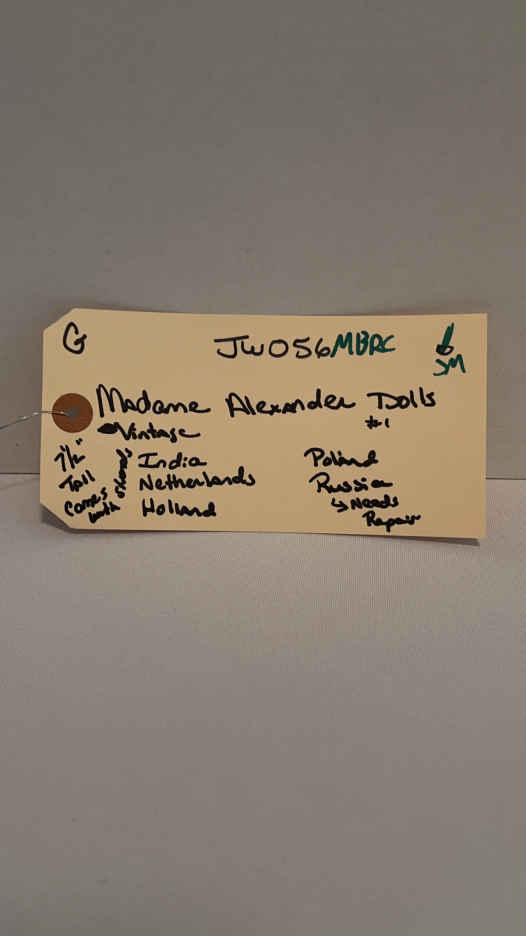 G
JW056 MBRC
JM
Madame Alexander Dolls
#1
Vintage
7 1/2"
Tall
Comes
with
India
Netherlands
Holland
Poland
Russia
↳ Needs
Repair